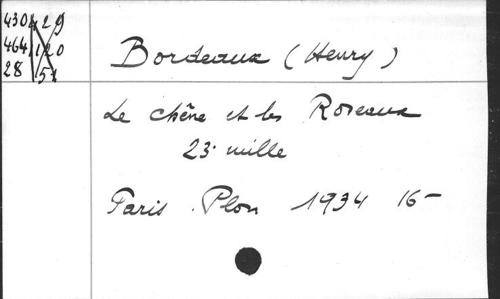 430429
464120
28 51
Bordeaux (Henry)
Le chêne et les Roseaux
23. mille
Paris. Plon 1934 16-